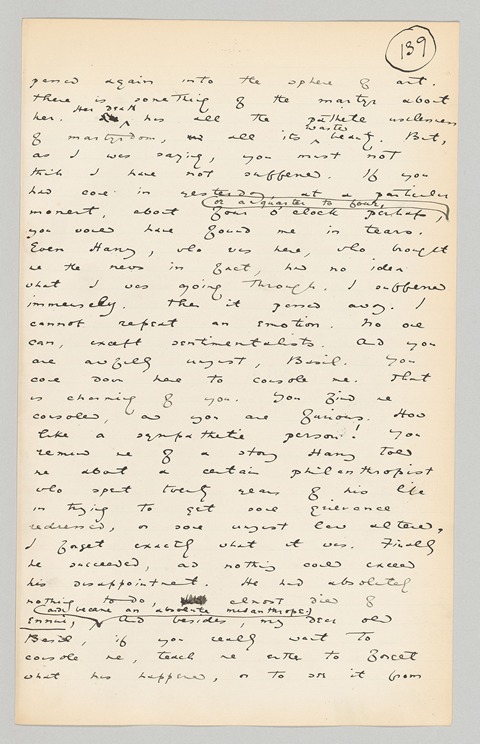 139
passed again into the sphere of art.
There is something of the martyr about
her. Her death has all the pathetic uselessness
of martyrdom, all its wasted beauty. But,
as I was saying, you must not
think I have not suffered. If you
had come in yesterday at a particular
moment, about four o'clock perhaps,
or a quarter to four,
you would have found me in tears.
Even Harry, who was here, who brought
me the news in fact, had no idea
what I was going through. I suffered
immensely. Then it passed away. I
cannot repeat an emotion. No one
can, except sentimentalists. And you
are awfully unjust, Basil. You
come down here to console me. That
is charming of you. You find me
consoled, and you are furious. How
like a sympathetic person! You
remind me of a story Harry told
me about a certain philanthropist
who spent twenty years of his life
in trying to get some grievance
redressed, or some unjust law altered,
I forget exactly what it was. Finally
he succeeded, and nothing could exceed
his disappointment. He had absolutely
nothing to do, almost died of
(and became an absolute misanthrope.)
ennui, And besides, my dear old
Basil, if you really want to
console me, teach me rather to forget
what has happened, or to see it from